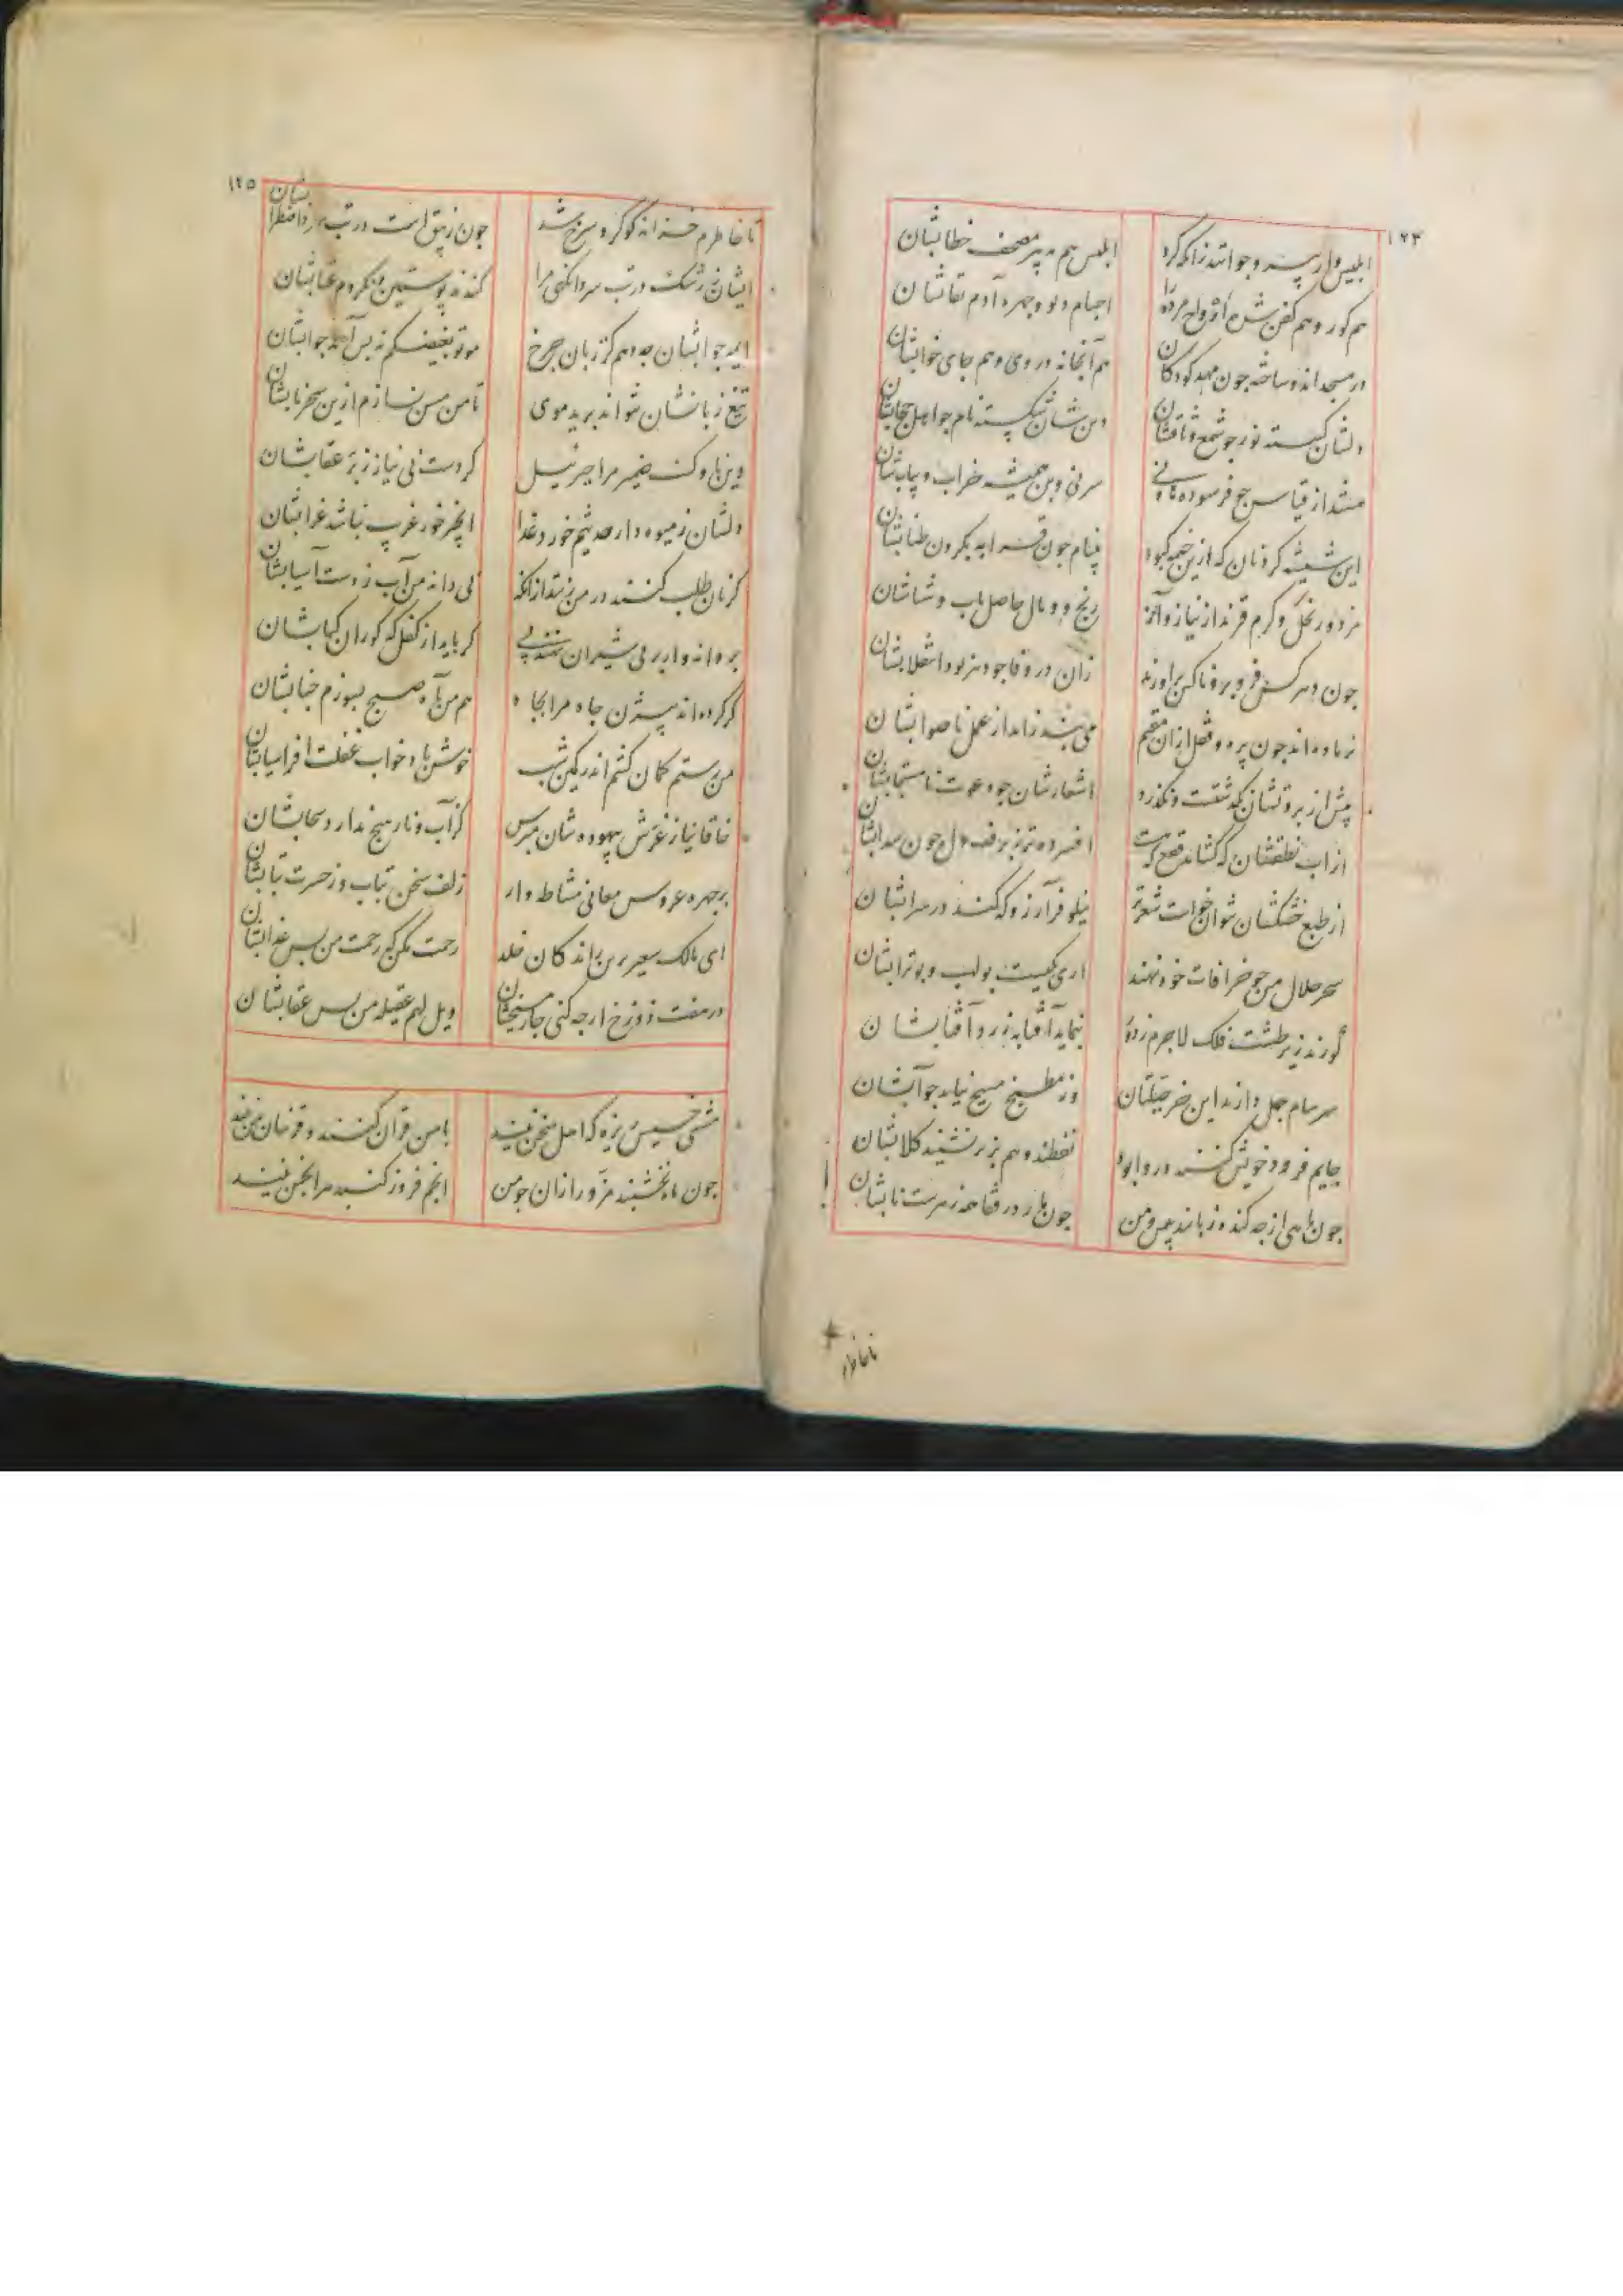 ۱۲۴
ابلیس‌وار پیر و جوانند زانکه کرد ابلیس هم به پیر مصحف خطابشان
هم کور و هم کفن شده ارواح مرده را اجسام دیو و چهره آدم نقابشان
در مسجدند و ساخته چون مهد کودکان هم آبخانه در وی و هم جای خوابشان
دلشان گسسته نور چو شمع وثاقشان دین‌شان شکسته نام چو اهل حجابشان
از قیاس چو فرسوده سرنی و بن همیشه خراب و بیابشان
این شیشه گردنان که ازین خیمه کبود بینام چون قرابه بگردن طنابشان
مزدور نخل و کرم قزند از نیاز و آز رنج و وبال حاصل باب و شابشان
چون دهر کس فرو بر و ناکس برآورند زان در وفا چو دهر بود انقلابشان
نر ماده‌اند چون پره و قفل ازان مقیم می بند زاید از عمل ناصوابشان
پیش از بروتشان نگذشتست و نگذرد اشعارشان چو دعوت نامستجابشان
از آب نطقشان که گشاید فقع که هست افسرده‌تر ز برف دل چون سدابشان
از طبع خشکشان نتوان خواست شعر تر نیلوفر آرزو که کند در سرابشان
سحر حلال من چو خرافات خود نهند آری یکیست بولهب و بوترابشان
گویند زیر طشت فلک لاجرم زدور بنماید آفتابه زر و آفتابشان
سرسام جهل دارند این خر جبلتان وز مطبخ مسیح نیاید جو آبشان
جایم فرود خویش کنند و روا بود نفطند و هم بزیر نشیند گلابشان
چون ماهی ارچه کنده زبانند پیش من چون مار در قفا همه زهرست نابشان
تا خاطرم
۱۲۵
تا خاطرم خزانه گوگرد سرخ شد چون زیبق است در تب سرد اضطرابشان
ایشان ز رشک در تب سرد آنگهی مرا کندند پوستین و نکردم عتابشان
ای چه جوابشان چه دهم کز زبان چرخ موتوا بغیظکم نه بس آمد جوابشان
تیغ زبانشان نتواند برید موی تا من مسن نسازم ازین سحر نابشان
وین ناوک ضمیر مرا جبرئیل کردست بی نیاز ز پر عقابشان
دلشان ز میوه‌دار حدیثم خورد غذا انجیرخور غریب نباشد غرابشان
گر نان طلب کنند در من زنند ازانکه بی دانه من آب ز دست آسیابشان
پروانه‌وار بر پی شیران نهند پی گر باید از کفلگه گوران کبابشان
گر کرده‌اند بیژن جاه مرا بچاه هم من به آه صبح بسوزم جنابشان
من رستم کمان کشم اندر کمین شب خوش باد خواب غفلت افراسیابشان
خاقانیا ز غرش بیهوده‌شان مترس کز آب و نار هیچ ندارد سحابشان
بر چهره عروس معانی مشاطه‌وار زلف سخن بتاب و ز حسرت بتابشان
ای مالک سعیر برین راندگان خلد زحمت مکن که زحمت من بس عذابشان
در هفت دوزخ ارچه کنی چار میخشان ویل لهم عقیله من بس عقابشان
مشتی خسیس ریزه که اهل سخن نیند با من قران کنند و قرینان من نیند
چون ماه نخشبند مزور ازان چو من انجم فروز گنبد هر انجمن نیند